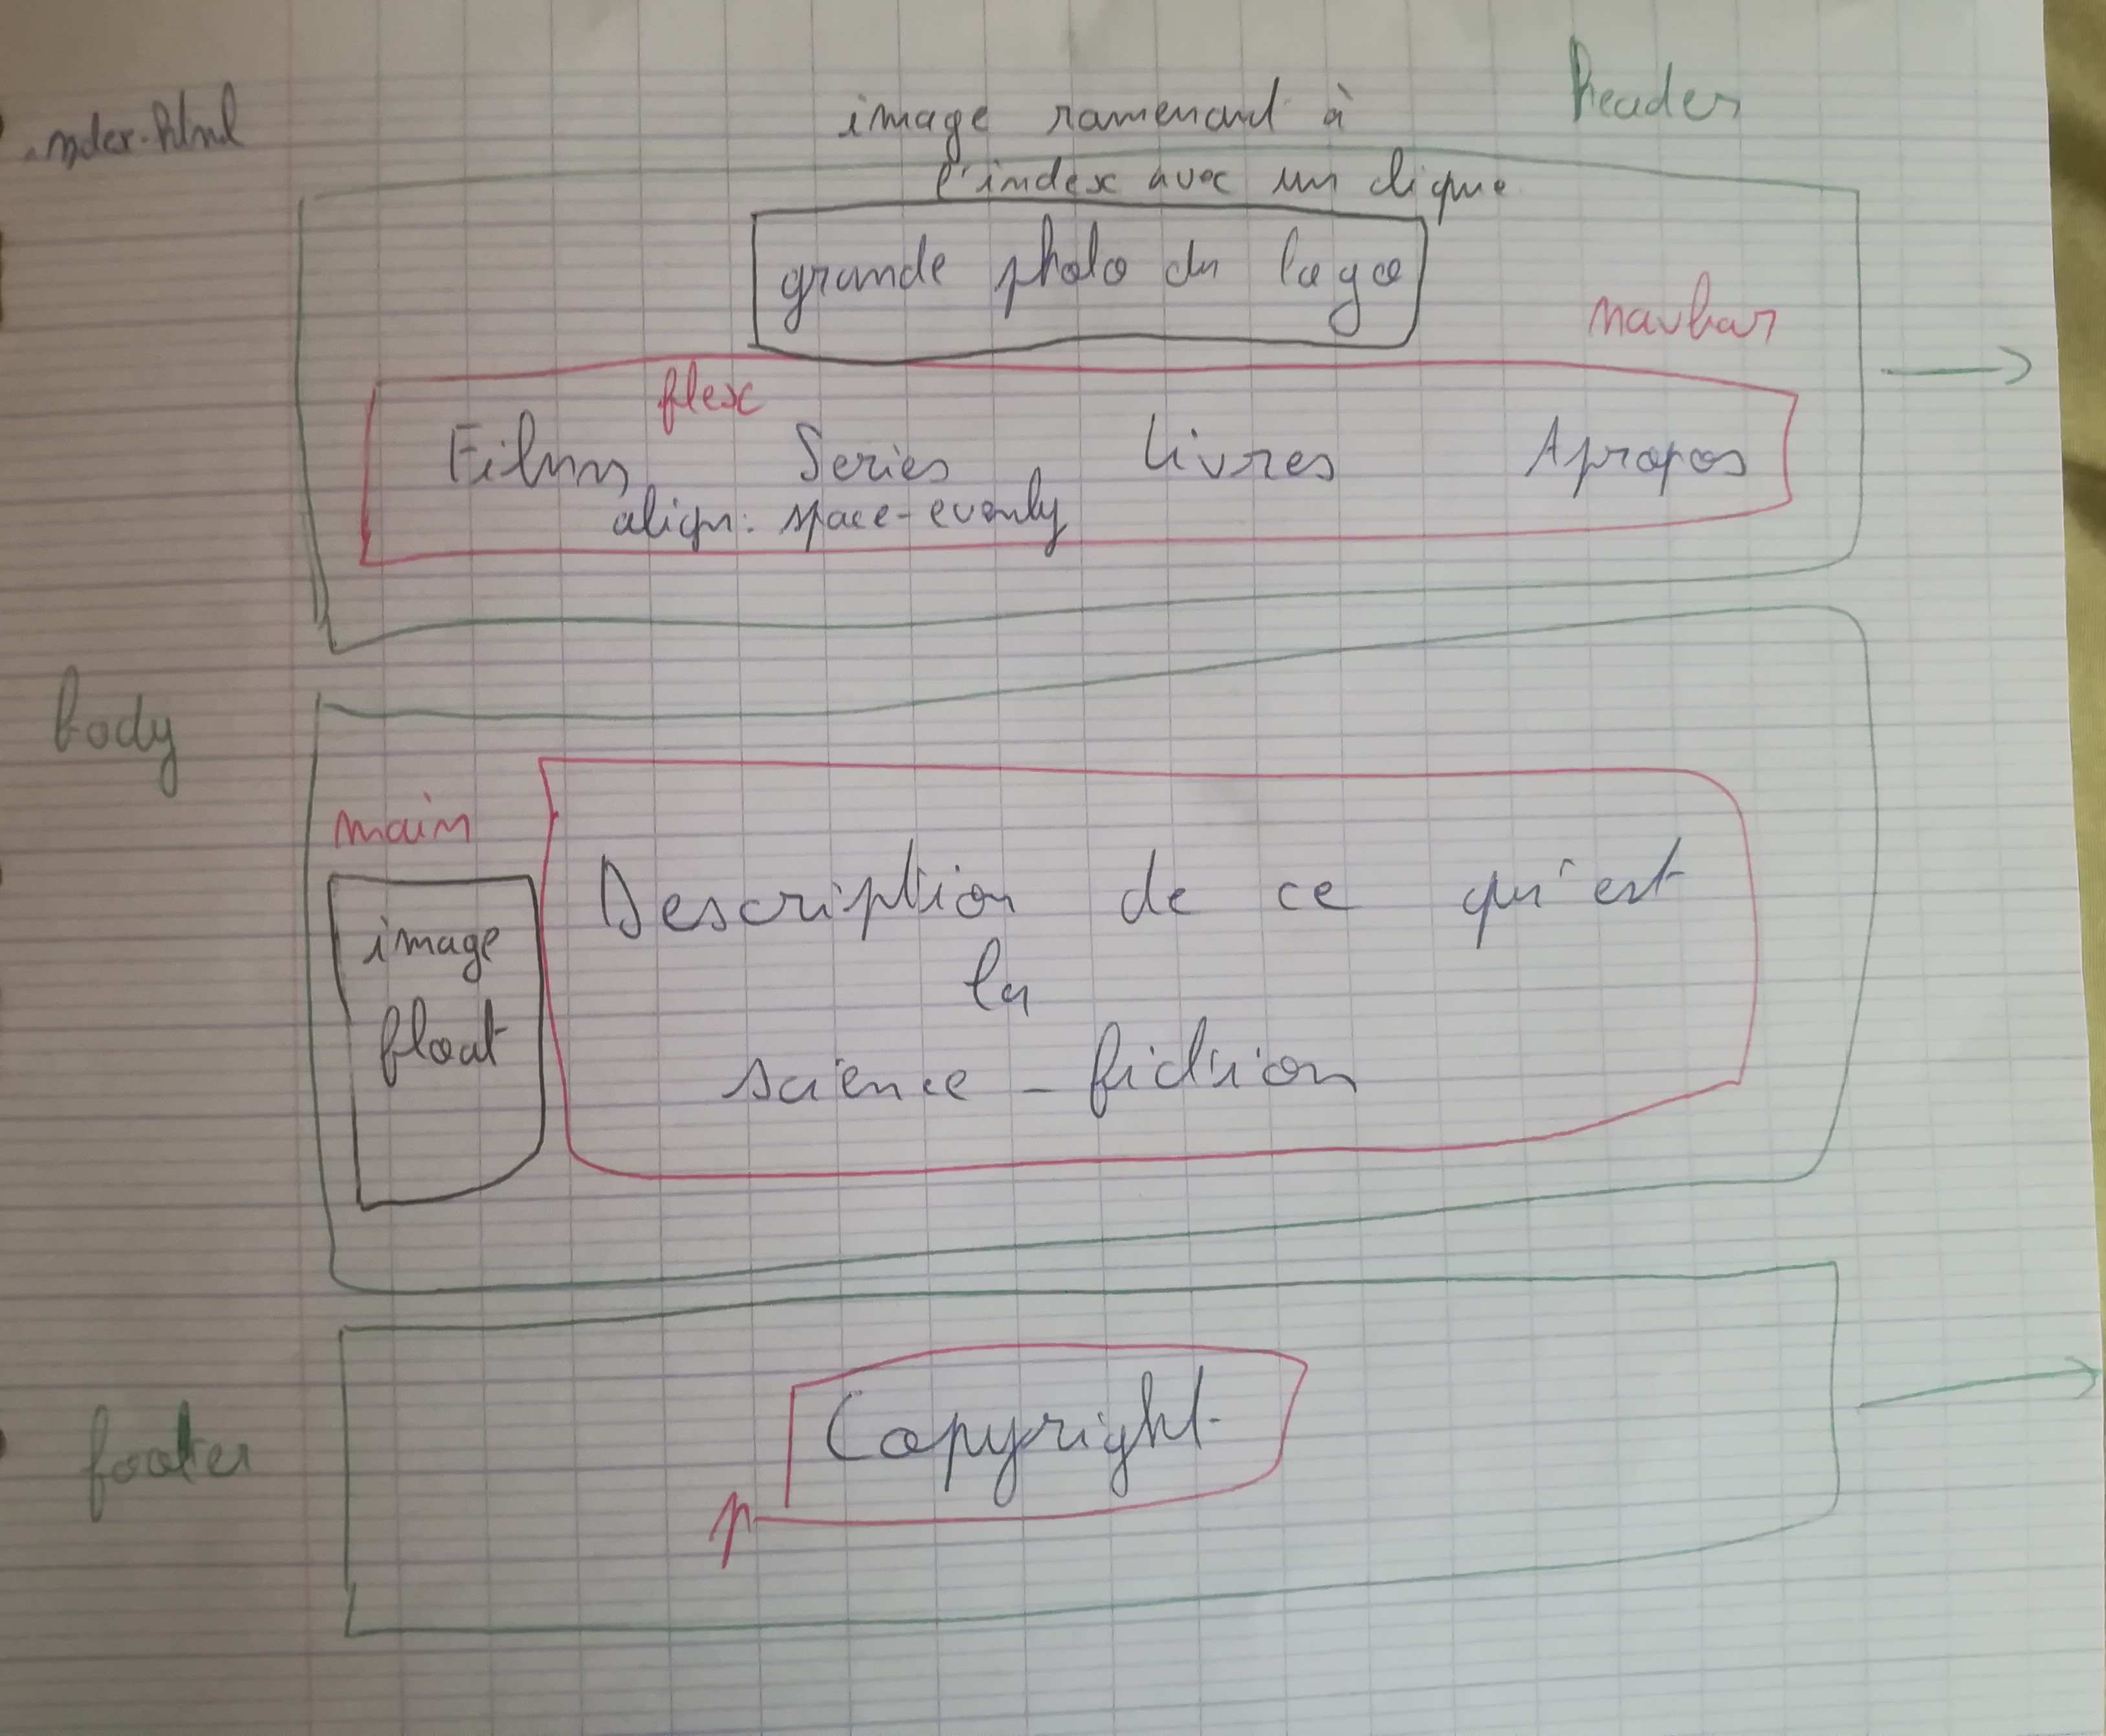 index.html
header
image ramenand à
l'index avec un clique
grande photo du logo
navbar
flex
Films Series Livres Apropos
align: space-evenly
body
main
image
float
Description de ce qu'est
la
science-fiction
footer
Copyright
p